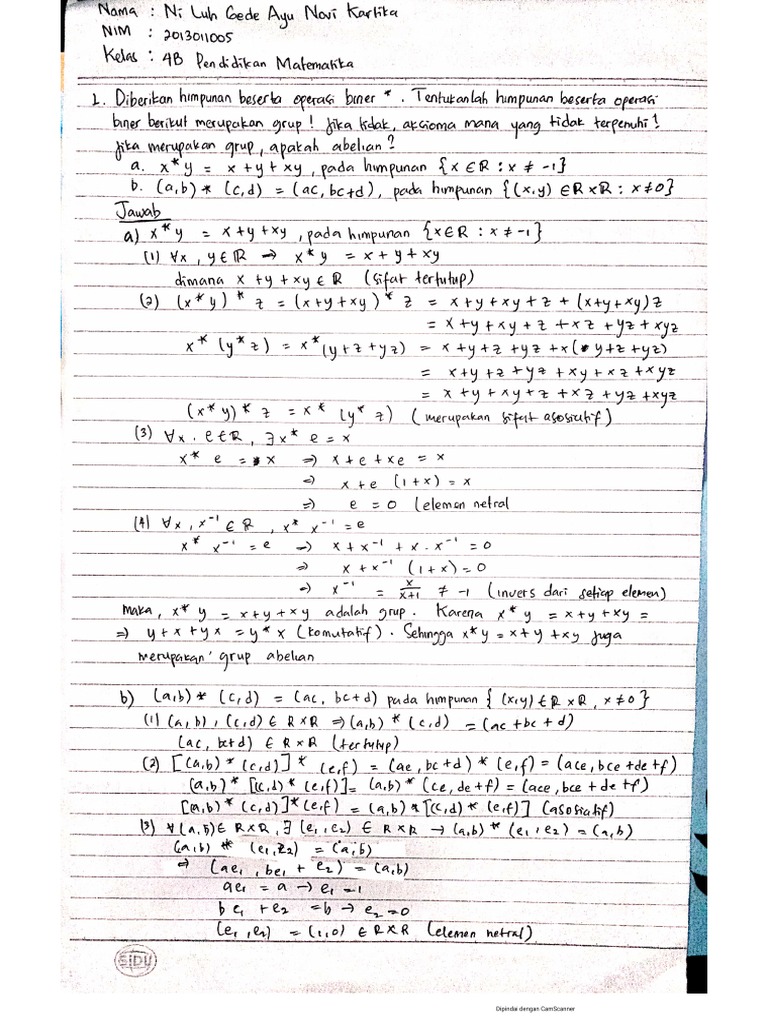 Nama : Ni Luh Gede Ayu Novi Kartika
NIM : 2013011005
Kelas : 4B Pendidikan Matematika
1. Diberikan himpunan beserta operasi biner * . Tentukanlah himpunan beserta operasi
biner berikut merupakan grup ! Jika tidak, aksioma mana yang tidak terpenuhi !
Jika merupakan grup, apakah abelian ?
a. x * y = x + y + xy , pada himpunan {x ∈ R : x ≠ -1}
b. (a,b) * (c,d) = (ac, bc+d), pada himpunan {(x,y) ∈ R x R : x ≠ 0}
Jawab
a) x * y = x + y + xy , pada himpunan {x ∈ R : x ≠ -1}
(1) ∀x , y ∈ R → x * y = x + y + xy
dimana x + y + xy ∈ R (sifat tertutup)
(2) (x * y) * z = (x+y+xy) * z = x + y + xy + z + (x+y+xy)z
= x + y + xy + z + xz + yz + xyz
x * (y * z) = x * (y+z+yz) = x + y + z + yz + x(y+z+yz)
= x + y + z + yz + xy + xz + xyz
= x + y + xy + z + xz + yz + xyz
(x * y) * z = x * (y * z) (merupakan sifat asosiatif)
(3) ∀x . e ∈ R , ∃ x * e = x
x * e = x ⇒ x + e + xe = x
⇒ x + e (1+x) = x
⇒ e = 0 (elemen netral
(4) ∀x , x⁻¹ ∈ R , x * x⁻¹ = e
x * x⁻¹ = e → x + x⁻¹ + x . x⁻¹ = 0
⇒ x + x⁻¹ (1+x) = 0
→ x⁻¹ = x/x+1 ≠ -1 (invers dari setiap elemen)
Maka, x * y = x + y + xy adalah grup. Karena x * y = x + y + xy =
⇒ y + x + yx = y * x (komutatif). Sehingga x * y = x + y + xy juga
merupakan grup abelian
b) (a,b) * (c,d) = (ac, bc+d) pada himpunan {(x,y) ∈ R x R , x ≠ 0}
(1) (a,b) , (c,d) ∈ R x R ⇒ (a,b) * (c,d) = (ac + bc + d)
(ac, bc+d) ∈ R x R (tertutup)
(2) [(a,b) * (c,d)] * (e,f) = (ae, bc+d) * (e,f) = (ace, bce + de + f)
(a,b) * [(c,d) * (e,f)] = (a,b) * (ce, de+f) = (ace, bce + de + f)
[(a,b) * (c,d)] * (e,f) = (a,b) * [(c,d) * (e,f)] (asosiatif)
(3) ∀(a,b) ∈ R x R , ∃ (e₁, e₂) ∈ R x R → (a,b) * (e₁, e₂) = (a,b)
(a,b) * (e₁, e₂) = (a,b)
⇒ (ae₁ , be₁ + e₂) = (a,b)
ae₁ = a → e₁ = 1
be₁ + e₂ = b → e₂ = 0
(e₁, e₂) = (1,0) ∈ R x R (elemen netral)
SIDU
Dipindai dengan CamScanner